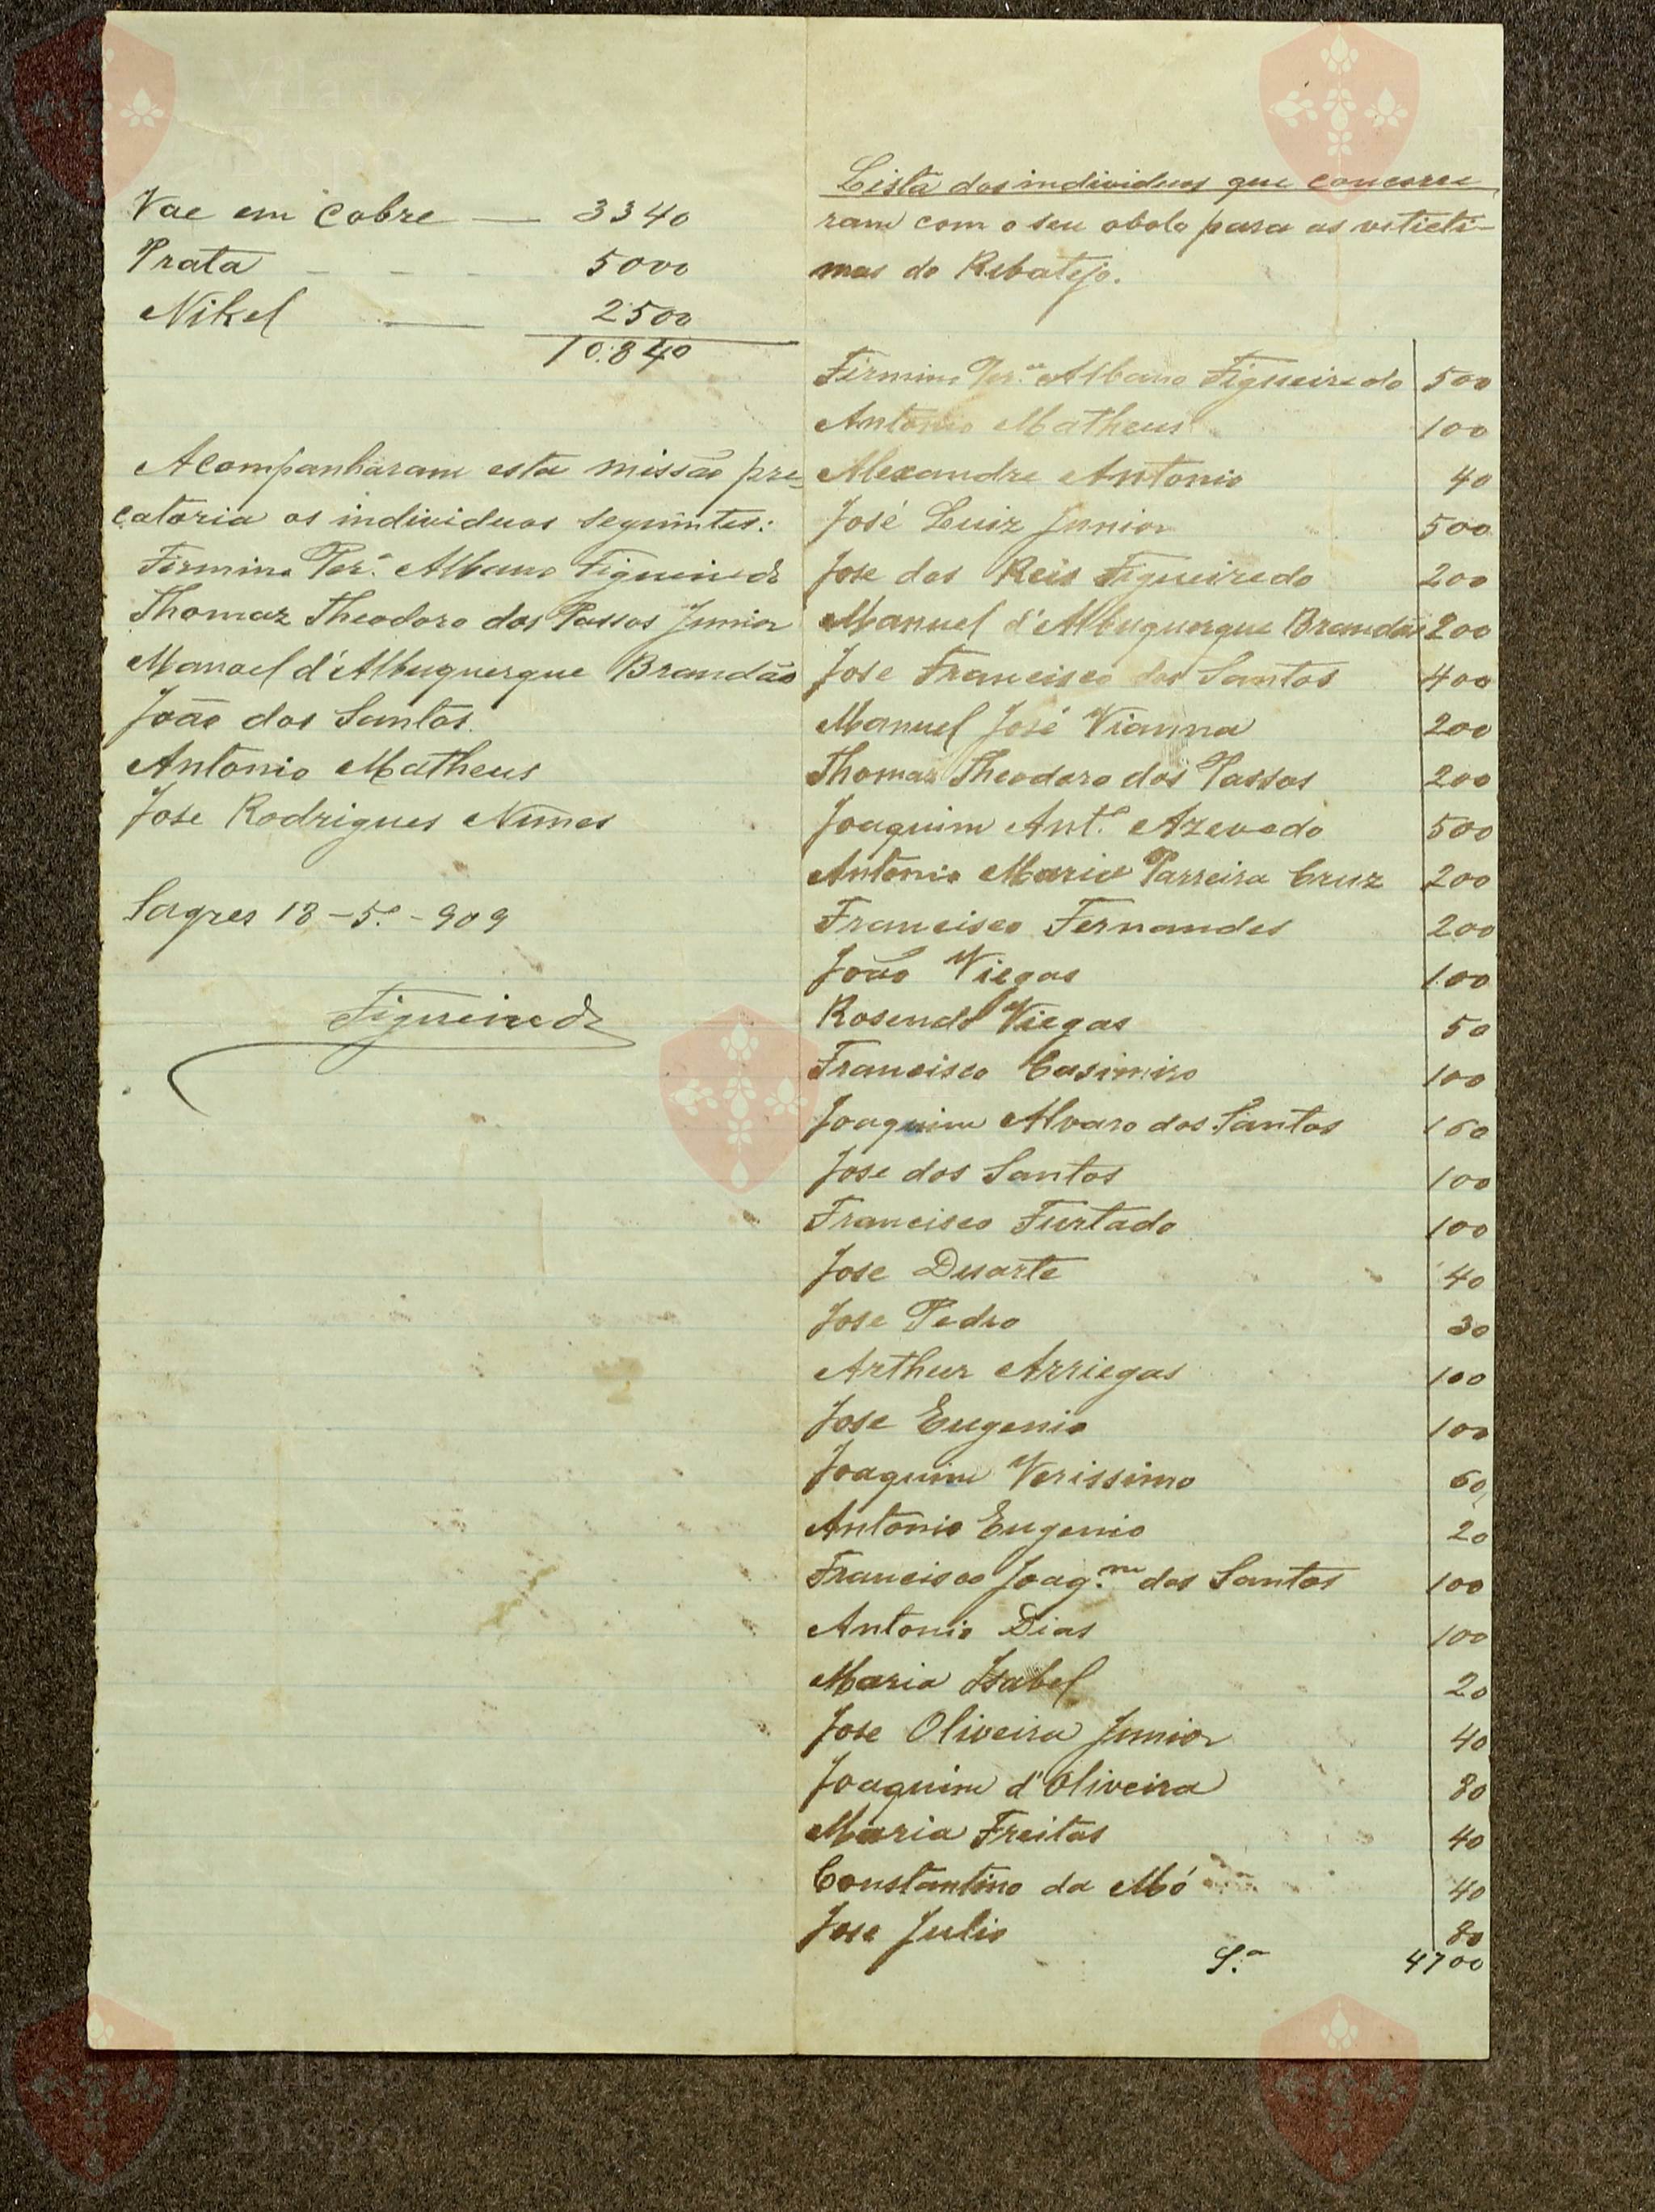 Vae em cobre — 3340
Prata - - - 5000
Nikel — 2500
10.840
Acompanharam esta missão pre-
catoria os individuos seguintes:
Firmino Per.ª Albano Figueiredo
Thomaz Theodoro dos Passos Junior
Manoel d'Albuquerque Brandão
João dos Santos.
Antonio Matheus
Jose Rodrigues Nunes
Sagres 18-5º-909
Figueiredo
Lista dos individuos que concorre
ram com o seu obolo para as victi-
mas do Ribatejo.
Firmino Per.ª Albano Figueiredo 500
Antonio Matheus 100
Alexandre Antonio 40
José Luiz Junior 500
Jose dos Reis Figueiredo 200
Manuel d'Albuquerque Brandão 200
Jose Francisco dos Santos 400
Manuel José Vianna 200
Thomaz Theodoro dos Passos 200
Joaquim Ant.º Azevedo 500
Antonio Maria Parreira Cruz 200
Francisco Fernandes 200
João Viegas 100
Rosendo Viegas 50
Francisco Casimiro 100
Joaquim Alvaro dos Santos 160
Jose dos Santos 100
Francisco Furtado 100
Jose Duarte 40
Jose Pedro 30
Arthur Arriegas 100
Jose Eugenio 100
Joaquim Verissimo 60
Antonio Eugenio 20
Francisco Joaq.m dos Santos 100
Antonio Dias 100
Maria Isabel 20
Jose Oliveira Junior 40
Joaquim d'Oliveira 80
Maria Freitas 40
Constantino da Mó 40
Jose Julio 80
S.ª 4700